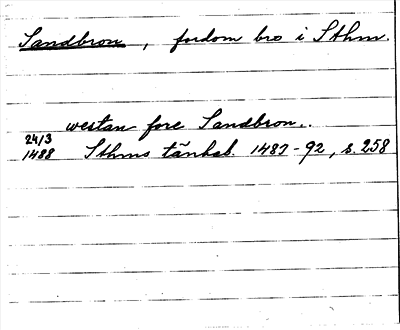 Sandbron, fordom bro i Sthm.
westan fore Sandbron..
24/3
1488 Sthms tänkeb. 1487-92, s. 258